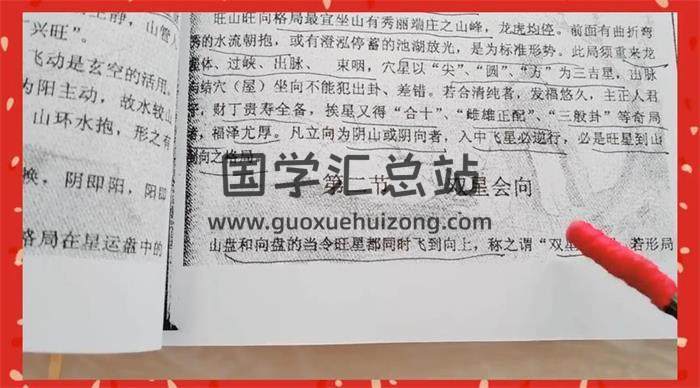 主静，山管人
兴旺”。
飞动是玄空的活用
为阳主动，故水较山
山环水抱，形之有
换，阴即阳，阳即
格局在星运盘中的
旺山旺向格局最宜坐山有秀丽端庄之山峰，龙虎均停。前面有曲折弯
的水流朝抱，或有澄泓停蓄的池湖放光，是为标准形势。此局须重来龙
体、过峡、出脉、束咽，穴星以“尖”、“圆”、“方”为三吉星，山脉
结穴（屋）坐向不能犯出卦、差错。若合清纯者，发福悠久，主正人君
，财丁贵寿全备，挨星又得“合十”、“雌雄正配”、“三般卦”等奇局
，福泽尤厚。凡立向为阴山或阴向者，入中飞星必逆行，必是旺星到山
向之格局
第二节 双星会向
山盘和向盘的当令旺星都同时飞到向上，称之谓“双星 若形局
国学汇总站
www.guoxuehuizong.com